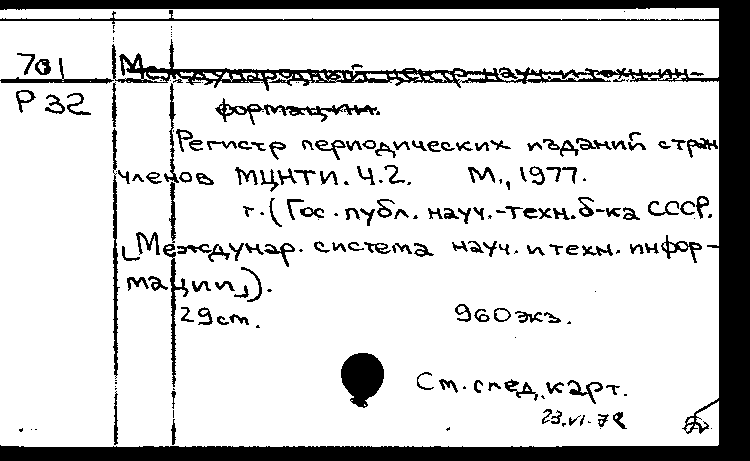 701 Международный центр науч. и техн. ин-
Р 32 формации.
Регистр периодических изданий стран
членов МЦНТИ. Ч.2. М., 1977.
т. (Гос. публ. науч.-техн. б-ка СССР.
Междунар. система науч. и техн. инфор-
мации).
29 см. 960 экз.
См. след. карт.
23.VI.78